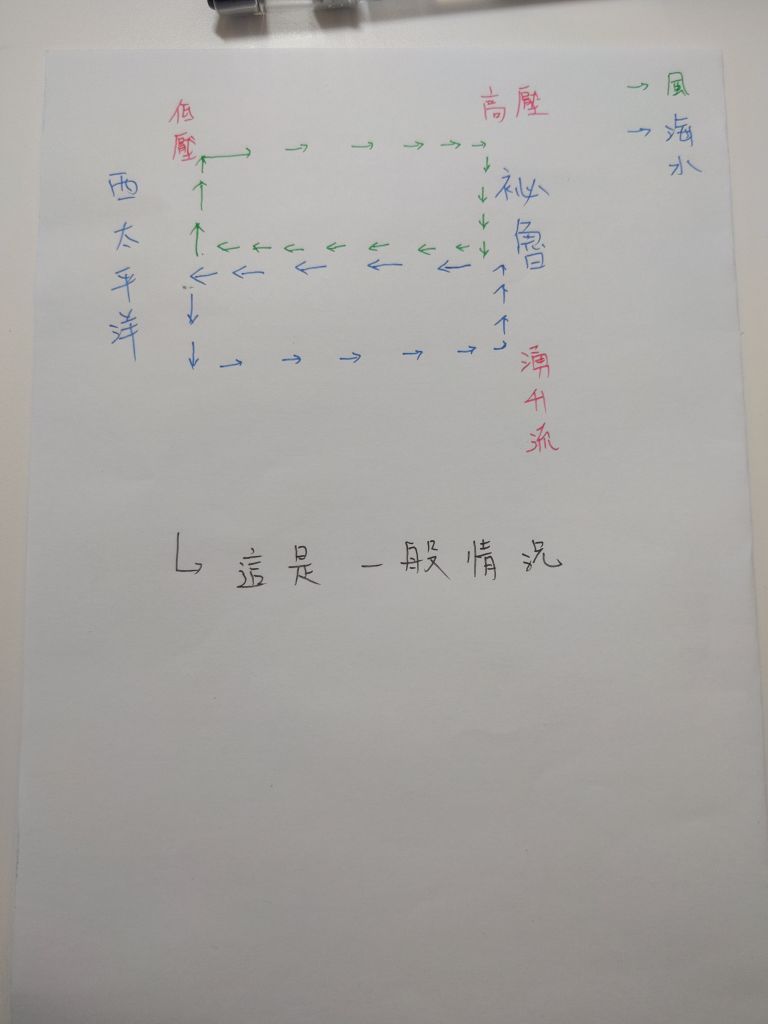 低壓
高壓
風
海水
西太平洋
祕魯
湧升流
這是一般情況